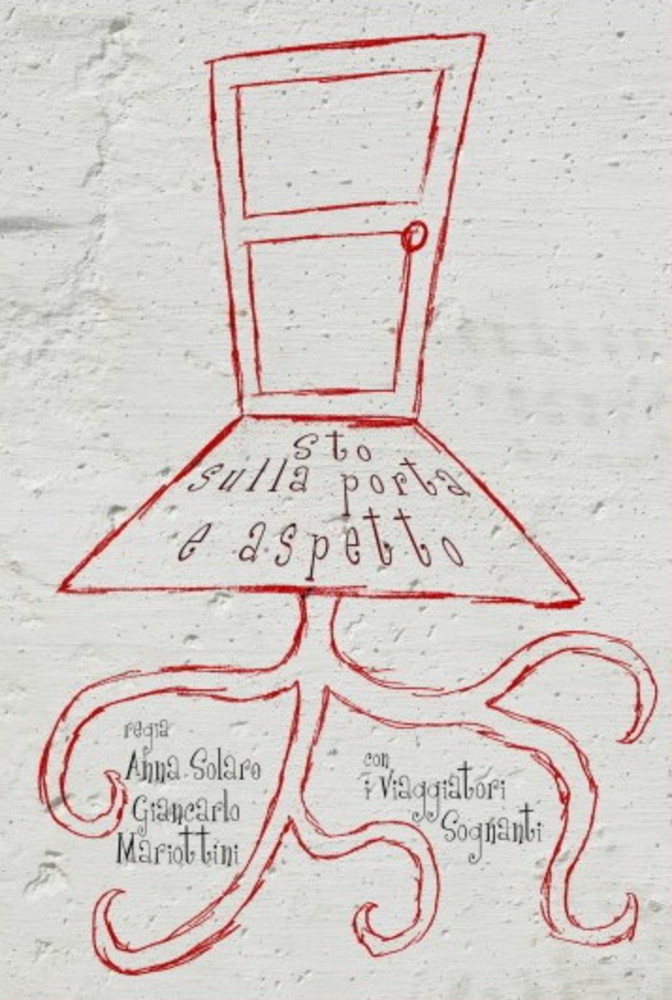 sto
sulla porta
e aspetto
regia
Anna Solaro
Giancarlo
Mariottini
con
i Viaggiatori
Sognanti